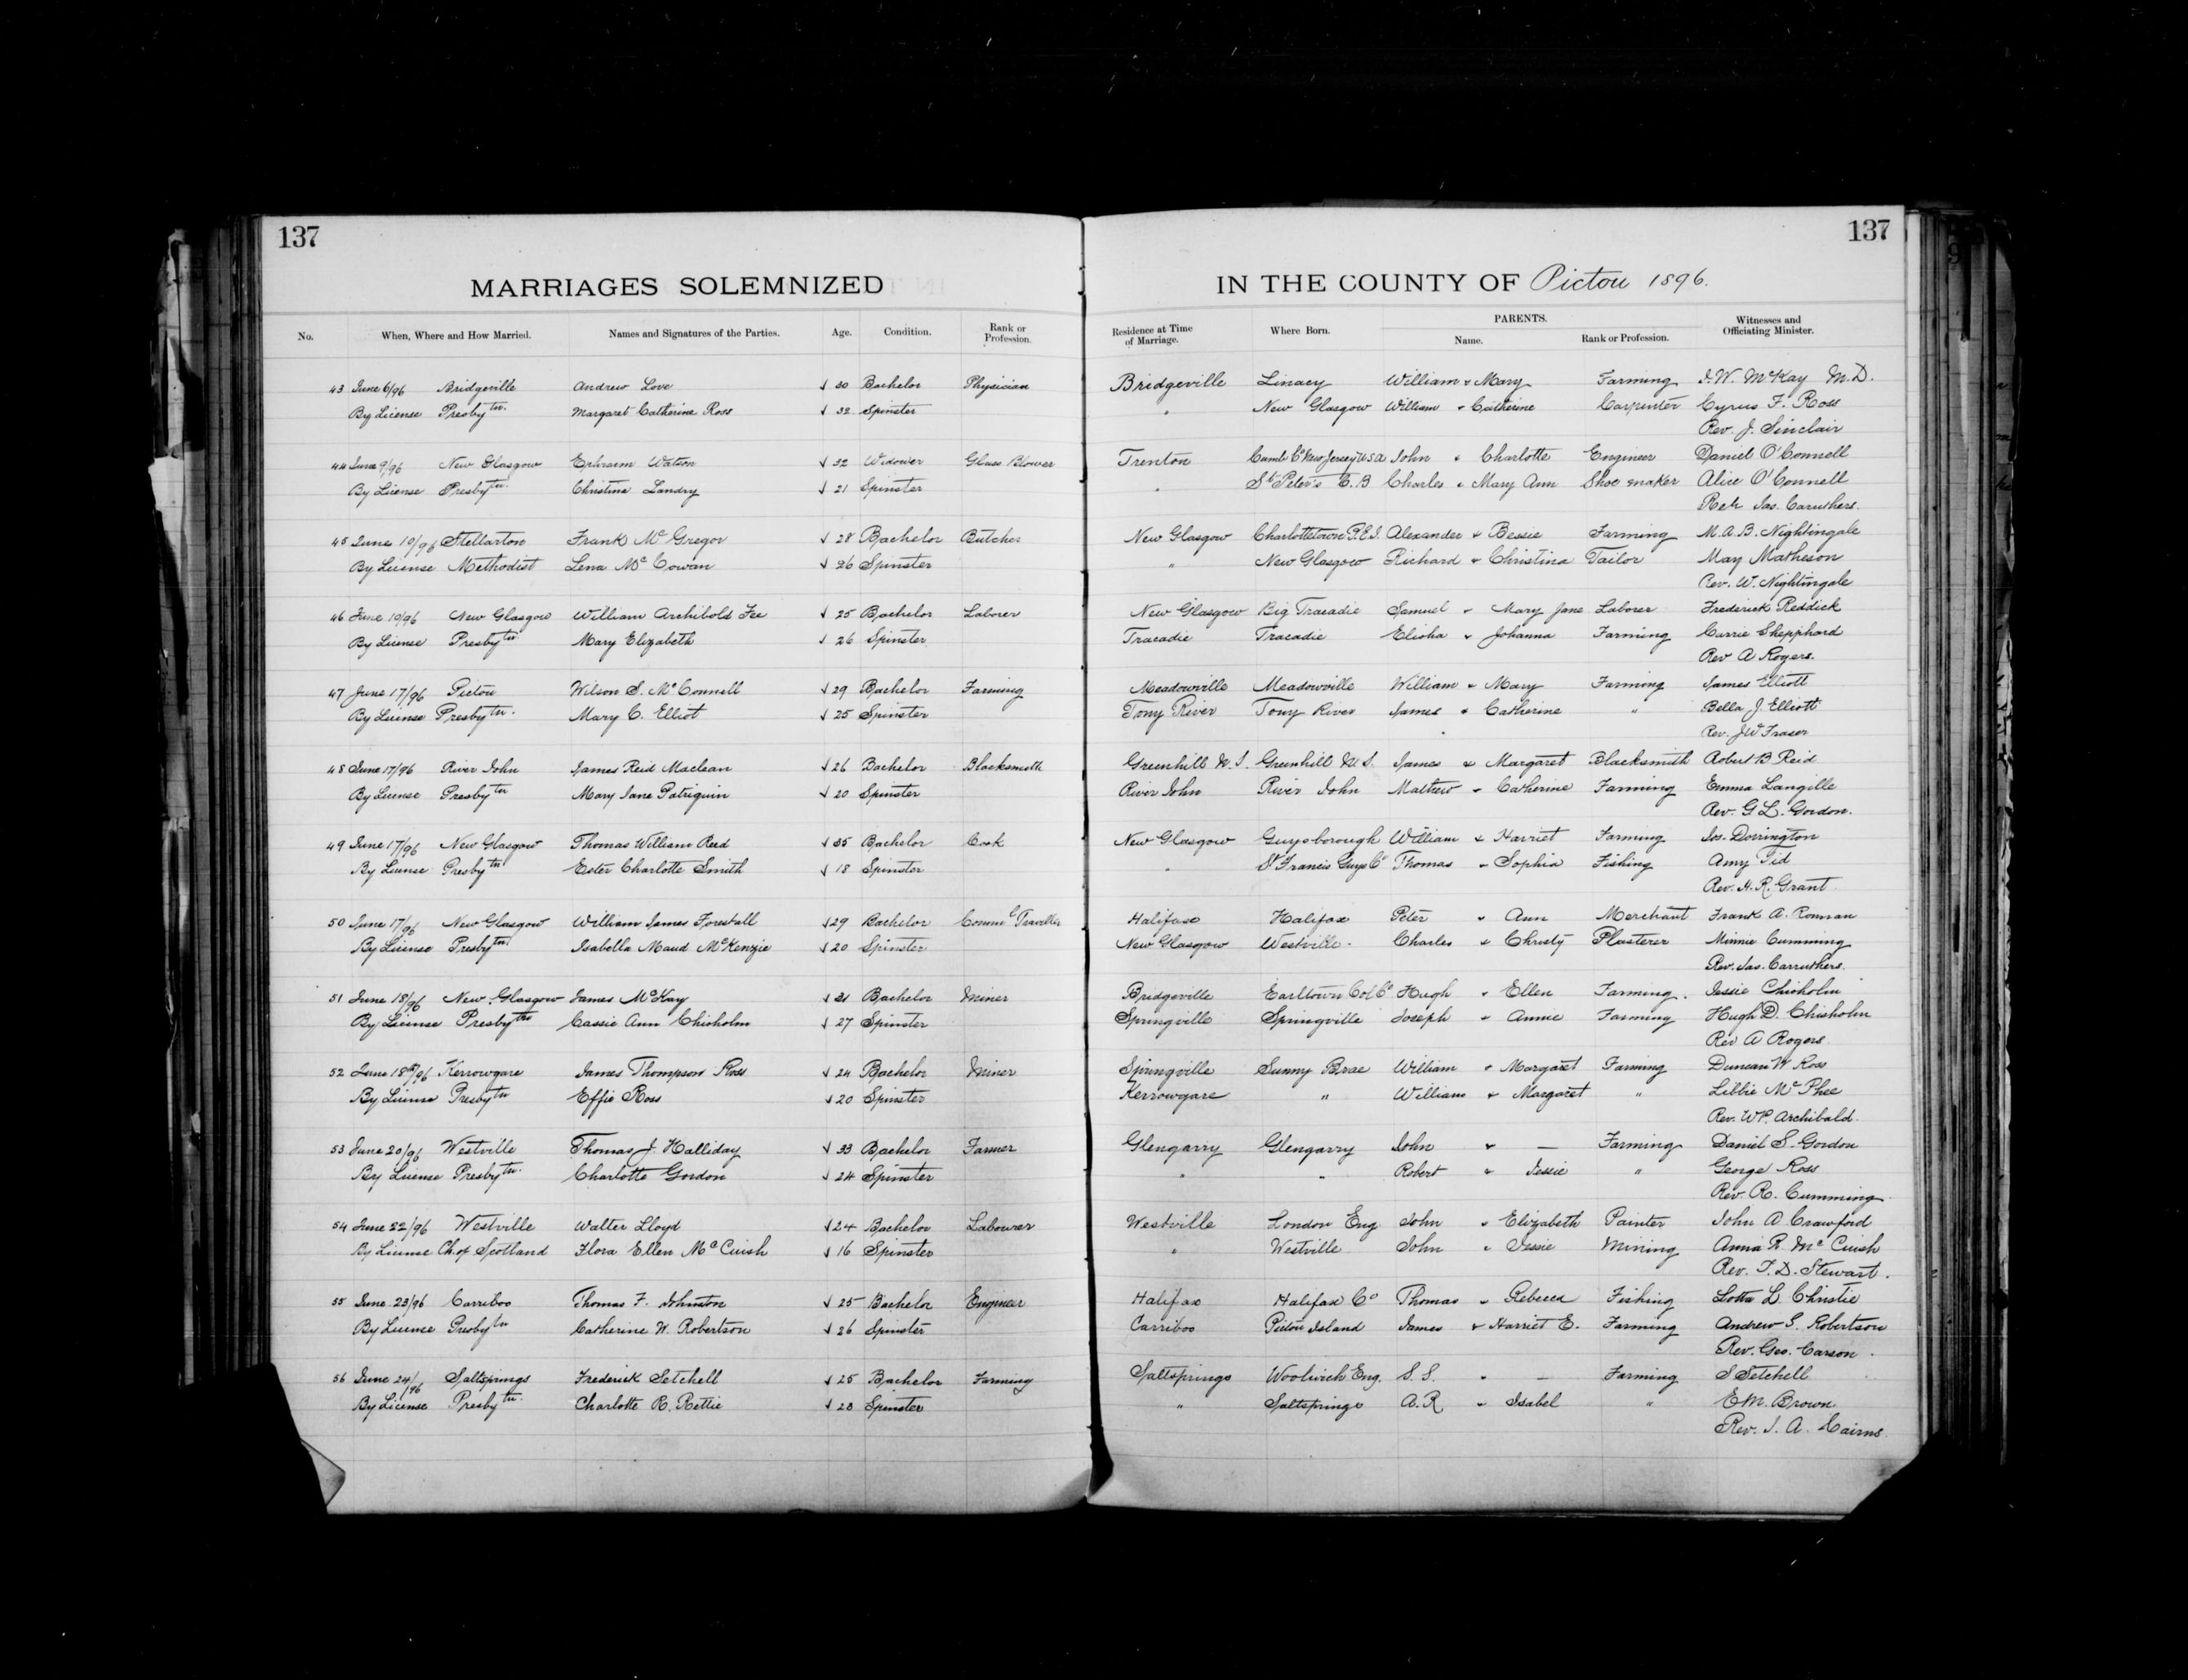 137
137
MARRIAGES SOLEMNIZED IN THE COUNTY OF Pictou 1896.
No. When, Where and How Married. Names and Signatures of the Parties. Age. Condition. Rank or Profession. Residence at Time of Marriage. Where Born. PARENTS. Name. Rank or Profession. Witnesses and Officiating Minister.
43 June 6/96 Bridgeville Andrew Love √ 30 Bachelor Physician Bridgeville Linacy William & Mary Farming J. W. McKay M.D.
By License Presbytn. Margaret Catherine Ross √ 32 Spinster " New Glasgow William & Catherine Carpenter Cyrus F. Ross
Rev. J. Sinclair
44 June 9/96 New Glasgow Ephraim Watson √ 32 Widower Glass Blower Trenton Cumb Co New Jersey U S A John & Charlotte Engineer Daniel O'Connell
By License Presbytn. Christina Landry √ 21 Spinster " St Peter's C.B Charles & Mary Ann Shoe maker Alice O'Connell
Jas. Caruthers.
45 June 10/96 Stellarton Frank McGregor √ 28 Bachelor Butcher New Glasgow Charlottetown P.E.I. Alexander & Bessie Farming M. A. B. Nightingale
By License Methodist Lena McCowan √ 26 Spinster " New Glasgow Richard & Christina Tailor May Matheson
Rev. W. Nightingale
46 June 10/96 New Glasgow William Archibold Fee √ 25 Bachelor Laborer New Glasgow Big Tracadie Samuel & Mary Jane Laborer Frederick Reddick
By License Presbytn. Mary Elizabeth √ 26 Spinster Tracadie Tracadie Elisha & Johanna Farming Carrie Shepphard
Rev A Rogers.
47 June 17/96 Pictou Wilson S. McConnell √ 29 Bachelor Farming Meadowville Meadowville William & Mary Farming James Elliott
By License Presbytn. Mary C. Elliot √ 25 Spinster Tony River Tony River James & Catherine " Bella J. Elliott
Rev. J W Fraser
48 June 17/96 River John James Reid Maclean √ 26 Bachelor Blacksmith Greenhill Greenhill James & Margaret Blacksmith Robert B Reid
By License Presbytn Mary Jane Patriquin √ 20 Spinster River John River John Mathew & Catherine Farming Emma Langille
Rev. G L. Gordon.
49 June 17/96 New Glasgow Thomas William Reid √ 35 Bachelor Cook New Glasgow Guysborough William & Harriet Farming Jos. Dorrington
By License Presbytn Ester Charlotte Smith √ 18 Spinster " St Francis Guys Co Thomas & Sophia Fishing Amy
Rev. H. R. Grant
50 June 17/96 New Glasgow William James Forestall √ 29 Bachelor Comml Traveller Halifax Halifax Peter & Ann Merchant Frank A. Ronnan
By License Presbytn Isabella Maud McKenzie √ 20 Spinster New Glasgow Westville. Charles & Christy Plasterer Minnie Cumming
Rev. Jas. Carruthers.
51 June 18/96 New Glasgow James McKay √ 31 Bachelor Miner Bridgeville Earltown Col Co Hugh & Ellen Farming. Jessie Chisholm
By License Presbytn Cassie Ann Chisholm √ 27 Spinster Springville Springville Joseph & Annie Farming Hugh D. Chisholm
Rev A Rogers
52 June 18th/96 Kerrowgare James Thompson Ross √ 24 Bachelor Miner Springville Sunny Brae William & Margaret Farming Duncan W Ross
By License Presbytn Effie Ross √ 20 Spinster Kerrowgare " William & Margaret " Libbie McPhee
Rev. W P. Archibald.
53 June 20/96 Westville Thomas J. Halliday √ 33 Bachelor Farmer Glengarry Glengarry John & — Farming Daniel S. Gordon
By License Presbytn. Charlotte Gordon √ 24 Spinster " " Robert & Jessie " George Ross
Rev. R. Cumming
54 June 22/96 Westville Walter Lloyd √ 24 Bachelor Labourer Westville London Eng John & Elizabeth Painter John A Crawford
By License Ch. of Scotland Flora Ellen McCuish √ 16 Spinster " Westville John & Jessie Mining Anna R. McCuish
Rev. T. D. Stewart.
55 June 23/96 Carriboo Thomas F. Johnston √ 25 Bachelor Engineer Halifax Halifax Co Thomas & Rebecca Fishing Lotta L. Christie
By License Presbytn Catherine W. Robertson √ 26 Spinster Carriboo Pictou Island James & Harriet E. Farming Andrew S. Robertson
Rev. Geo. Carson.
56 June 24/96 Saltsprings Frederick Setchell √ 25 Bachelor Farming Saltsprings Woolwich Eng. S. S. " — Farming S Setchell
By License Presbytn. Charlotte R. Rettie √ 28 Spinster " Saltsprings A. R & Isabel " E M. Brown
Rev. J. A. Cairns.